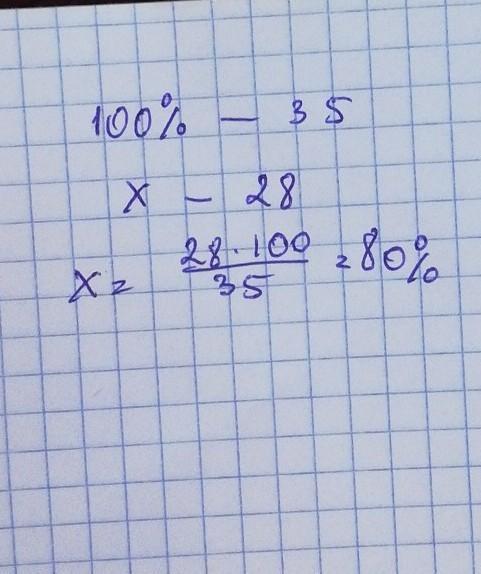 100% — 35
x — 28
x = 28·100/35 = 80%